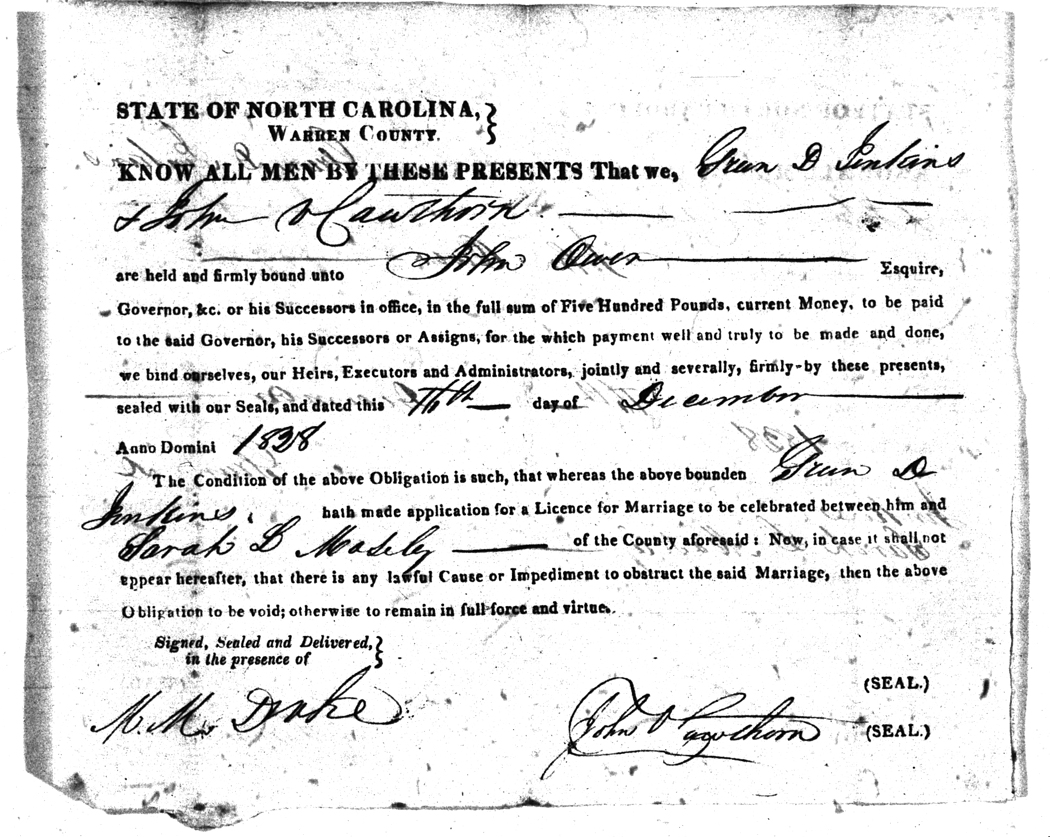 STATE OF NORTH CAROLINA,
WARREN COUNTY.
KNOW ALL MEN BY THESE PRESENTS That we, Green D Jenkins
& John V Cawthorn
are held and firmly bound unto John Owen Esquire,
Governor, &c. or his Successors in office, in the full sum of Five Hundred Pounds, current Money, to be paid
to the said Governor, his Successors or Assigns, for the which payment well and truly to be made and done,
we bind ourselves, our Heirs, Executors and Administrators, jointly and severally, firmly by these presents,
sealed with our Seals, and dated this day of December
Anno Domini 1828
The Condition of the above Obligation is such, that whereas the above bounden Green D
Jenkins, hath made application for a Licence for Marriage to be celebrated between him and
Sarah L Mosely of the County aforesaid: Now, in case it shall not
appear hereafter, that there is any lawful Cause or Impediment to obstruct the said Marriage, then the above
Obligation to be void; otherwise to remain in full force and virtue.
Signed, Sealed and Delivered,
in the presence of
(SEAL.)
M. M. Drake John V Cawthorn (SEAL.)